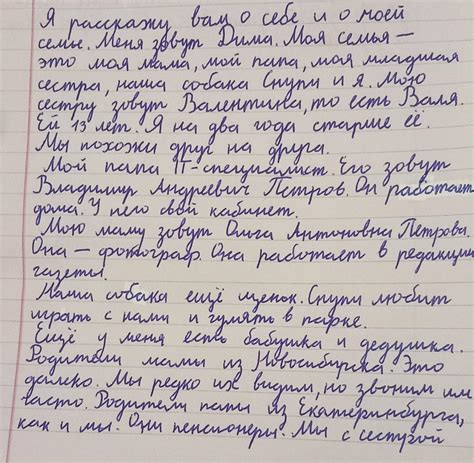 Я расскажу вам о себе и о моей
семье. Меня зовут Дима. Моя семья —
это моя мама, мой папа, моя младшая
сестра, наша собака Снупи и я. Мою
сестру зовут Валентина, то есть Валя.
Ей 13 лет. Я на два года старше её.
Мы похожи друг на друга.
Мой папа IT-специалист. Его зовут
Владимир Андреевич Петров. Он работает
дома. У него свой кабинет.
Мою маму зовут Ольга Антоновна Петрова.
Она — фотограф. Она работает в редакции
газеты.
Наша собака ещё щенок. Снупи любит
играть с нами и гулять в парке.
Ещё у меня есть бабушка и дедушка.
Родители мамы из Новосибирска. Это
далеко. Мы редко их видим, но звоним им
часто. Родители папы из Екатеринбурга,
как и мы. Они пенсионеры. Мы с сестрой